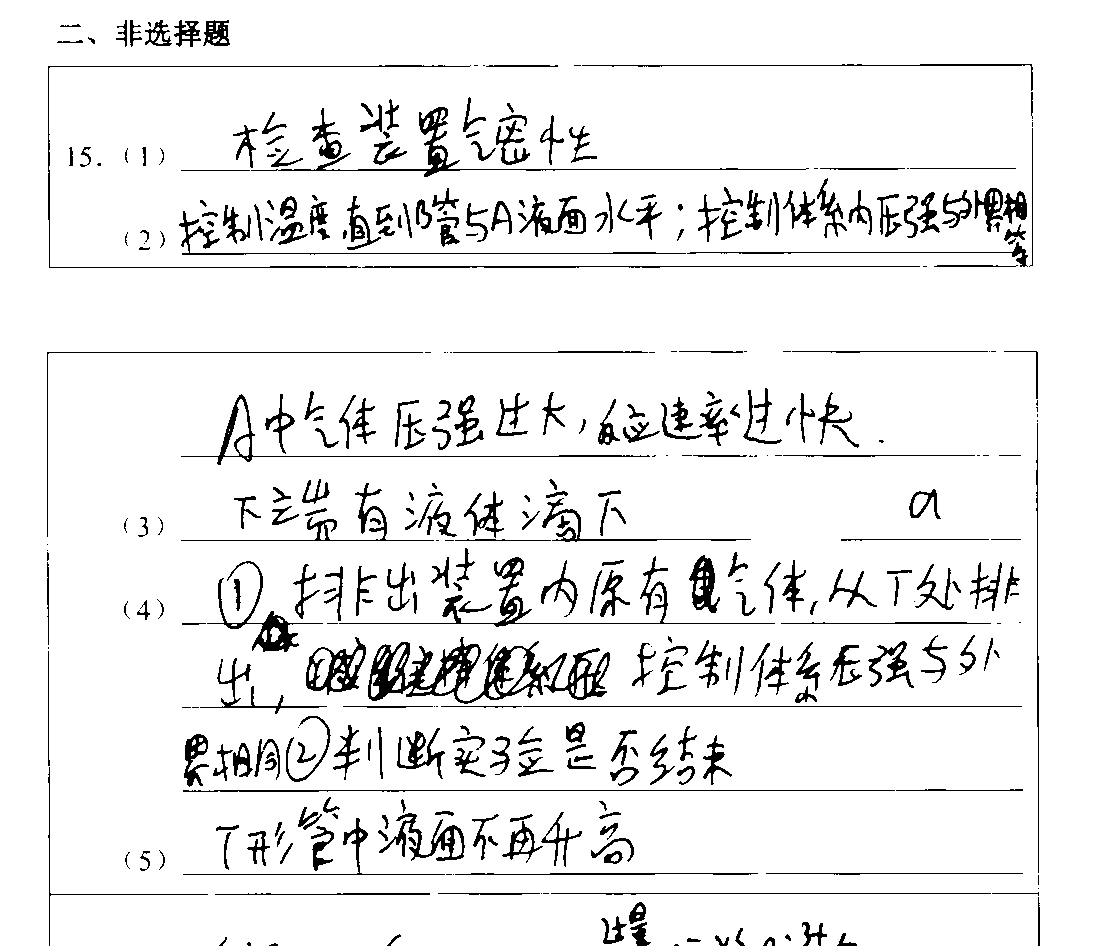 二、非选择题
15.（1） 检查装置气密性
（2） 控制温度直到B管与A液面水平；控制体系内压强与外界相等
A中气体压强过大，反应速率过快.
（3） 下端有液体滴下 a
（4） ① 排出装置内原有气体，从T处排
出， 控制体系压强与外
界相同②判断实验是否结束
（5） T形管中液面不再升高
过量